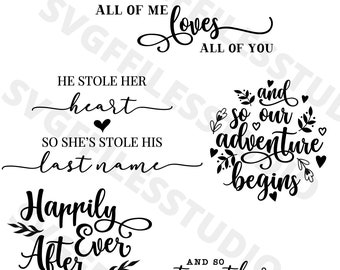 ALL OF ME
loves
ALL OF YOU
HE STOLE HER
heart
SO SHE'S STOLE HIS
last name
and
so our
adventure
begins
Happily
Ever
After
AND SO
SVGFILESSTUDIO